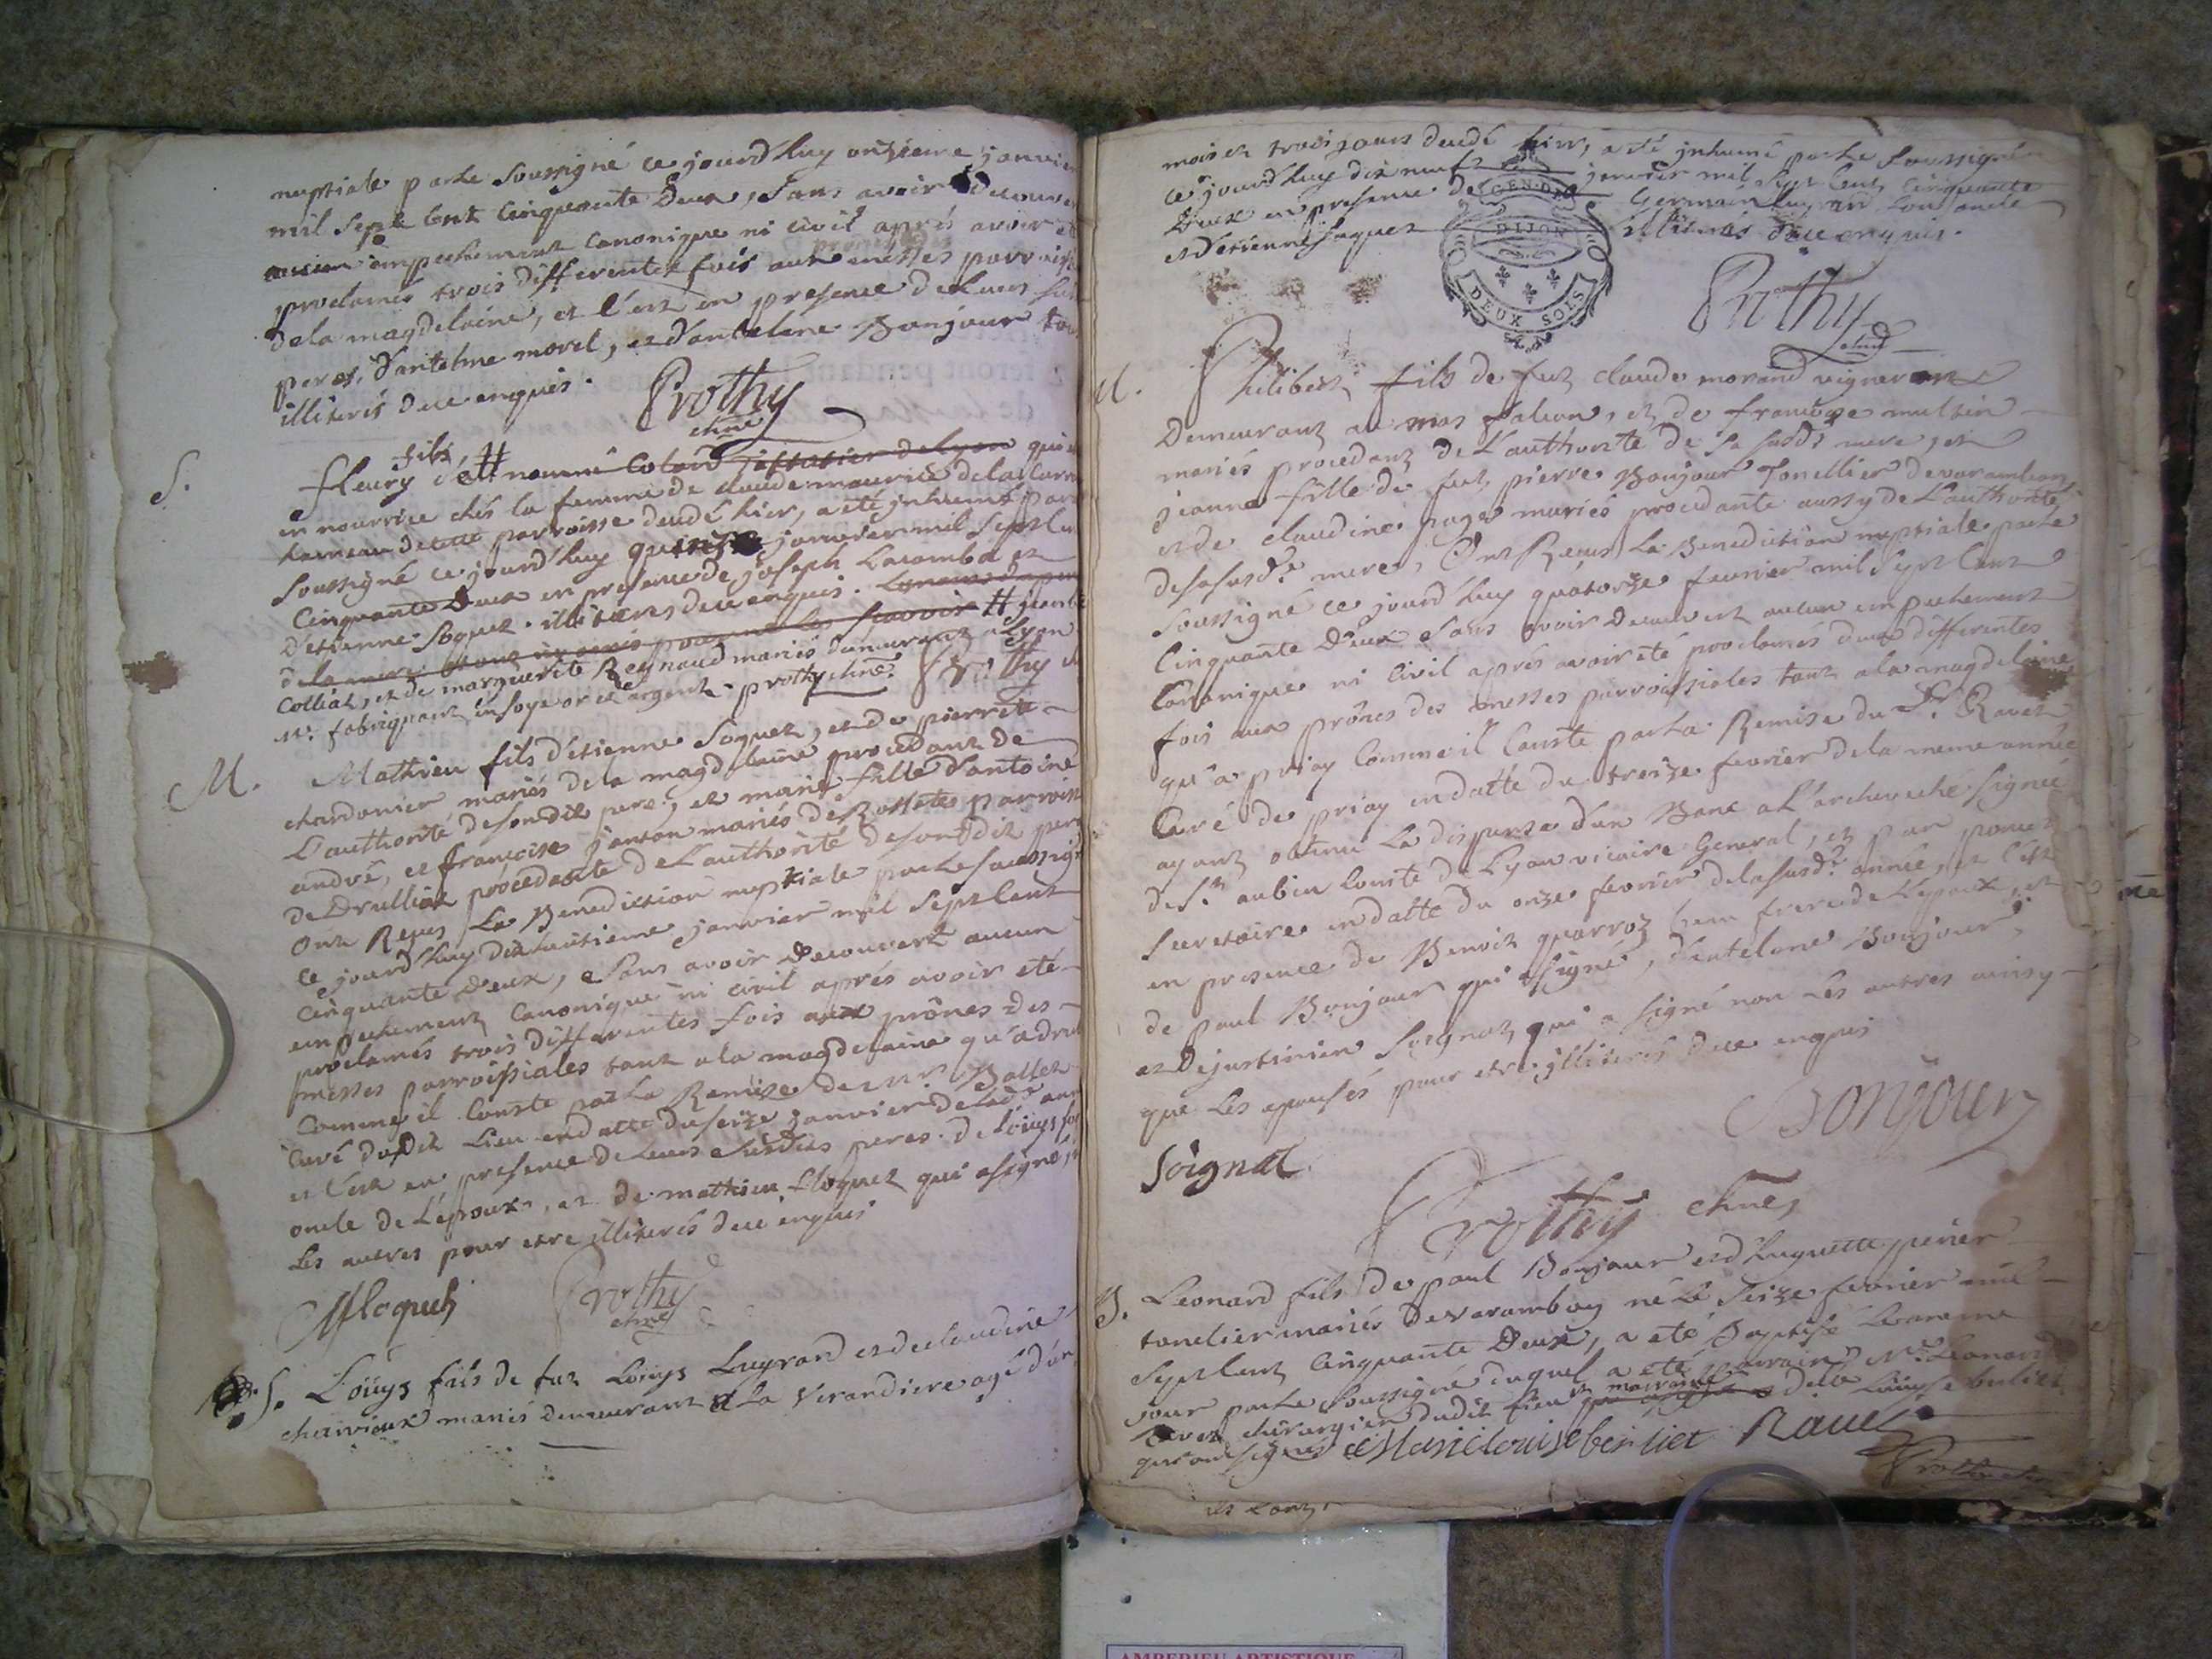 nuptiale par le soussigné ce jourd'huy onzieme janvier
mil sept cent cinquante deux, sans avoir decouvert
aucun empechement canonique ni civil aprés avoir été
proclamés trois differentes fois aux messes parroiss
de la magdelaine, et c'est en presence de leurs
peres, d'antelme morel, et d'antelme Bonjour tous
illiterés de ce enquis.
Prothy
S. fleury fils d'# nommé Colard de Lyon qui
en nourrice chés la femme de claude maurice de la
hameau de cette parroisse decedé hier, a été inhumé par
soussigné ce jourd'huy quinze janvier mil sept cen
cinquante deux en presence de joseph Lacombe et
d'etienne Soquet illiterés de ce enquis.
de la mere # jean
Colliat, et de marguerite Reynaud mariés demeurant a Lyon
Mr. fabriquant en soye or et argent. prothy
Prothy
M. Mathieu fils d'etienne Soquet, et de pierrette
chardonier mariés de la magdelaine procedant de
L'authorité de sondit pere, et marie fille d'antoine
andré, et françoise janton mariés de Rossettes parroisse
de Druilliat procedante de L'authorité de sondit pere
ont Reçus La Benediction nuptiale par le soussigné
ce jourd'huy dixhuitieme janvier mil sept cent
cinquante deux, sans avoir decouvert aucun
empechement canonique ni civil aprés avoir eté
proclamés trois differentes fois aux prônes des
messes parroissiales tant a la magdelaine qu'a dru
comme il conste par La Remise de Mr Ballet
curé dudit Lieu en datte du seize janvier de lad.e ann
et c'est en presence de Leurs susdits peres. de Loüys
oncle de L'epoux, et de mathieu floquet qui a signé,
Les autres pour etre illiterés de ce enquis
Mfloquet Prothy
S. Loüys fils de fut Loüys Luyrard et de claudine
chaivieux mariés demeurant a La Verandiere agé d'un
mois et trois jours decedé hier, a eté inhumé par le soussigné
ce jourd'huy dix neuf janvier mil sept cent cinquante
deux en presence de Germain Luyrard son oncle
et d'etienne Soquet illiterés de ce enquis.
GEN. DE
DIJON
DEUX SOLS
Prothy
M. Philibert fils de fut claude morand vigneron
demeurant au mas falcon, et de françoise multin
mariés procedant de L'authorité de sa susd.e mere, et
jeanne fille de fut pierre Bonjour Tonellier de varambon
et de claudine page mariés procedante aussy de L'authorité
de sa susd.e mere, Ont Reçus La Benediction nuptiale par le
soussigné ce jourd'huy quatorze fevrier mil sept cent
cinquante deux sans avoir decouvert aucun empechement
canonique ni civil aprés avoir eté proclamés deux differentes
fois aux prônes des messes parroissiales tant a la magdelaine
qu'a priay comme il conste par La Remise du Sr. Ravet
Curé de priay en datte du treize fevrier de la meme année
ayant obtenu La dispense d'un Banc a L'archeveché signée
de St. aubin comte de Lyon vicaire General, et par
secretaire en datte du onze fevrier de la susd.e année, et c'est
en presence de Benoit quarroz beau frere de L'epoux, et
de paul Bonjour qui a signé, d'antelme Bonjour,
et de justinien Soignat qui a signé non Les autres ainsy
que Les epousés pour etre illiterés de ce enquis
Bonjour
Soignat
Prothy
B. Leonard fils de paul Bonjour et d'huguette perier
tonelier mariés de Varambon né Le seize fevrier mil
sept cent cinquante deux, a eté Baptisé Le meme
jour par le soussigné duquel a eté parrain Mr. Leonard
Ravet chirurgien dudit Lieu et marraine delle Louise berliet
qui ont signés Marie louise berliet Ravet
Prothy
AMBERIEU ARTISTIQUE